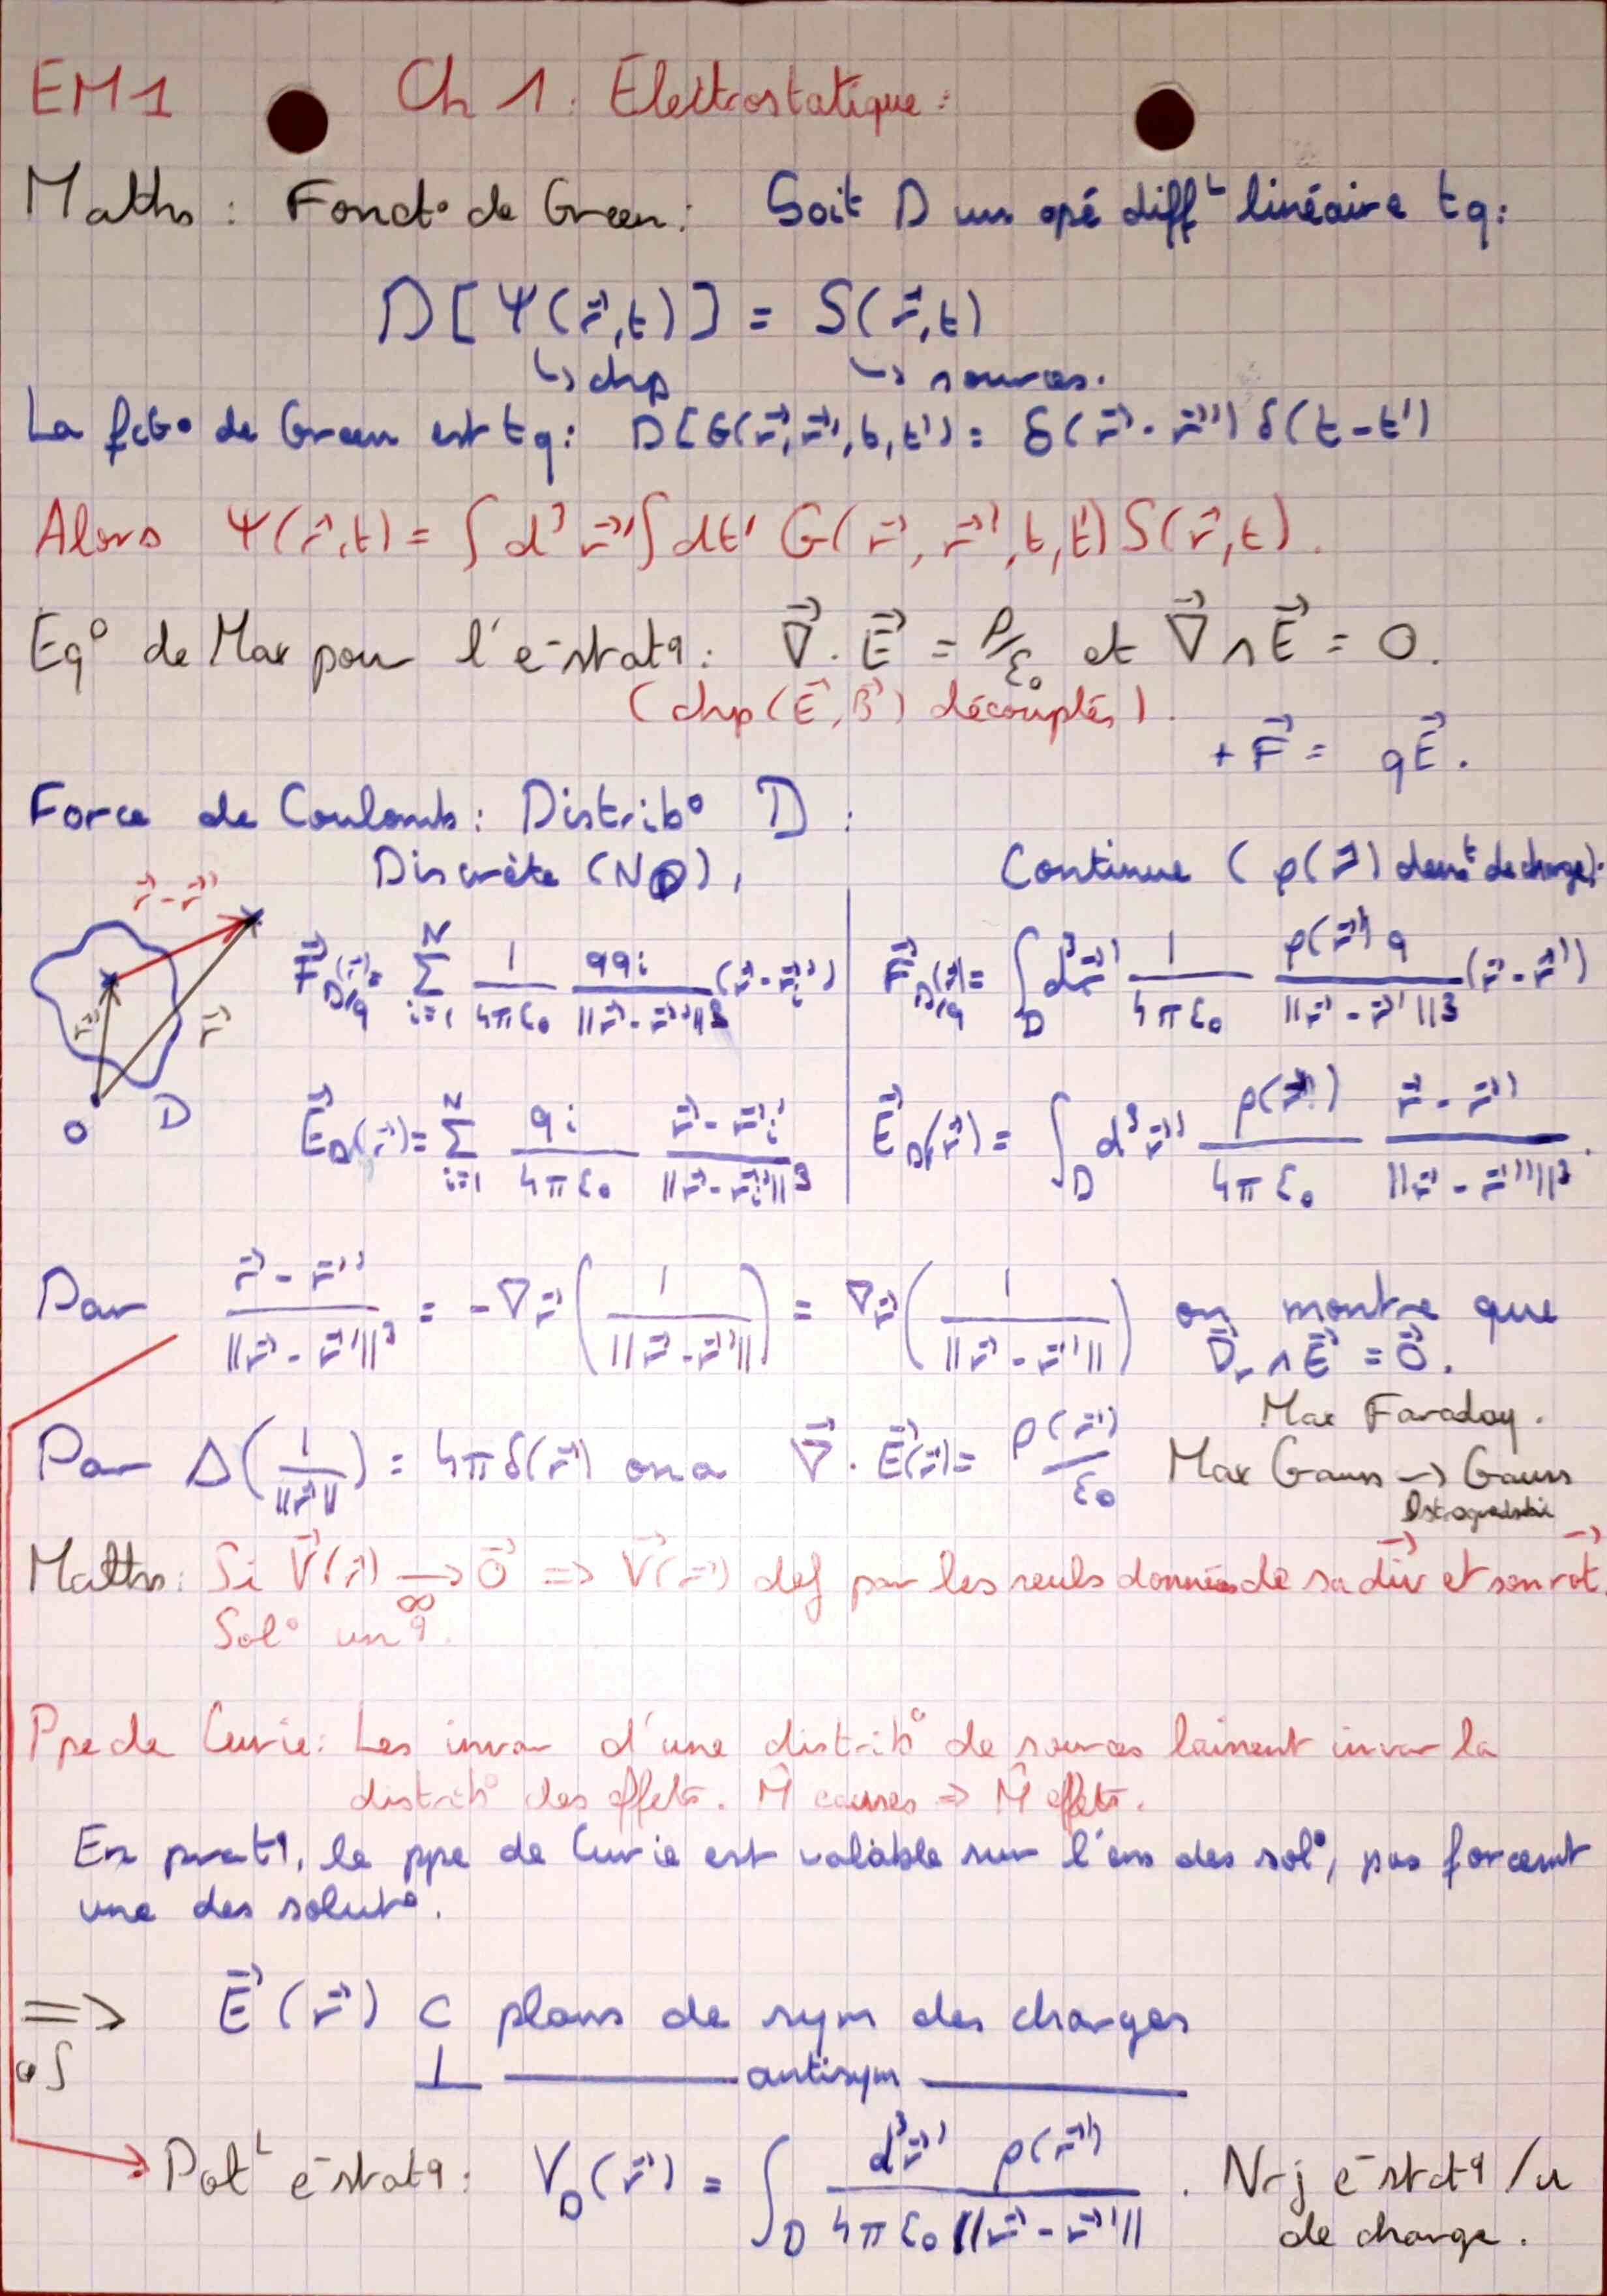 EM1 Ch 1 : Electrostatique :
Maths : Fonct° de Green : Soit D un opé diffᴸ linéaire tq :
D[Ψ(r⃗,t)] = S(r⃗,t)
↳ chp ↳ sources.
La fct° de Green est tq : D[G(r⃗,r⃗',t,t') = δ(r⃗-r⃗') δ(t-t')
Alors Ψ(r⃗,t) = ∫d³r⃗'∫dt' G(r⃗,r⃗',t,t') S(r⃗,t).
Eq° de Max pour l'e⁻statq : ∇⃗.E⃗ = ρ/ε₀ et ∇⃗∧E⃗ = 0.
(chp (E⃗,B⃗) découplés).
+ F⃗ = qE⃗.
Force de Coulomb : Distrib° D :
Discrète (NQ), Continue (ρ(r⃗) densᵗ de charge).
r⃗-r⃗'
r⃗' r⃗
O D
F⃗_D/q(r⃗) = Σ_{i=1}^N 1/(4πε₀) qqi/||r⃗-r⃗'||³ (r⃗-r⃗i') F⃗_D/q(r⃗) = ∫_D d³r⃗' 1/(4πε₀) ρ(r⃗')q/||r⃗-r⃗'||3 (r⃗-r⃗')
E⃗_D(r⃗) = Σ_{i=1}^N qi/(4πε₀) (r⃗-r⃗i')/||r⃗-r⃗i'||³ E⃗_D(r⃗) = ∫_D d³r⃗' ρ(r⃗')/(4πε₀) (r⃗-r⃗')/||r⃗-r⃗'||³.
Par (r⃗-r⃗')/||r⃗-r⃗'||³ = -∇r⃗(1/||r⃗-r⃗'||) = ∇r⃗(1/||r⃗-r⃗'||) on montre que
∇⃗r∧E⃗ = 0⃗.
Max Faraday.
Par Δ(1/||r⃗||) = 4πδ(r⃗) on a ∇⃗.E⃗(r⃗) = ρ(r⃗)/ε₀ Max Gauss → Gauss
Maths : Si V⃗(r⃗) →∞ 0⃗ => V⃗(r⃗) def par les seuls données de sa div⃗ et son rot⃗.
Sol° unq.
Ppe de Curie : Les invar d'une distrib° de sources laissent invar la
distrib° des effets. M̂ causes => M̂ effets.
En pratq, le ppe de Curie est valable sur l'ens des sol°, pas forcemt
une des solut°.
=> E⃗(r⃗) ⊂ plans de sym des charges
⊥ ——— antisym ———
Potᴸ e⁻statq : V_D(r⃗) = ∫_D d³r⃗' ρ(r⃗')/(4πε₀||r⃗-r⃗'||). Nrj e⁻statq /u
de charge.